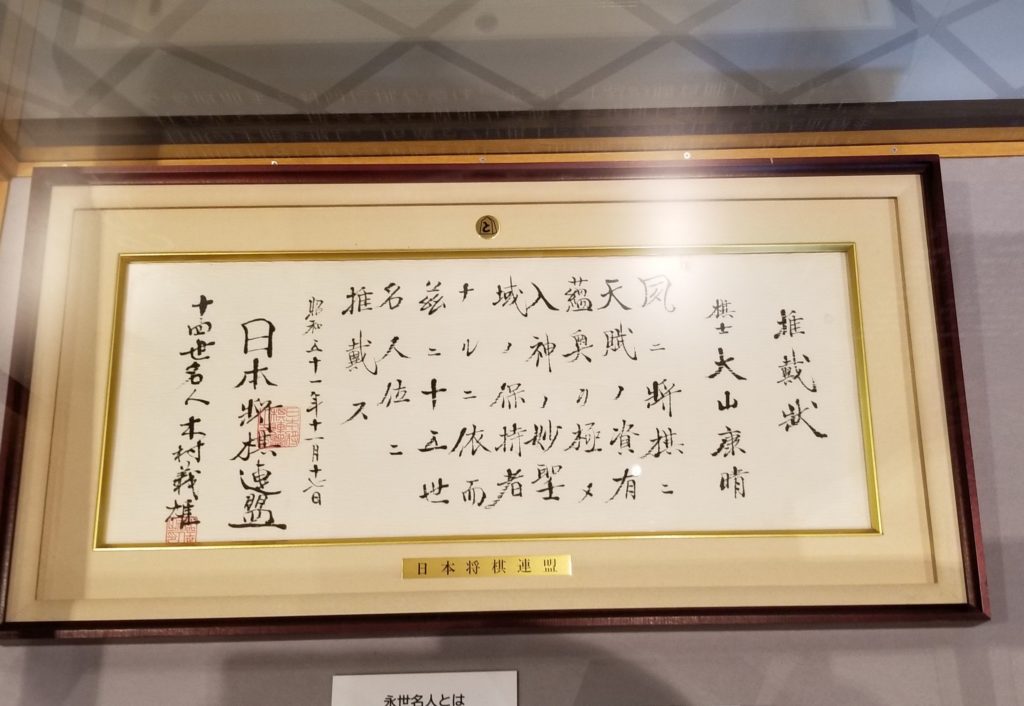 推戴狀
棋士 大山康晴
夙ニ将棋ニ
天賦ノ資有
蘊奥ヲ極メ
入神ノ妙聖
域ノ保持者
ナルニ依而
茲ニ十五世
名人位ニ
推戴ス
昭和五十一年十一月十七日
日本将棋連盟
十四世名人 木村義雄
と
日本将棋連盟
永世名人とは